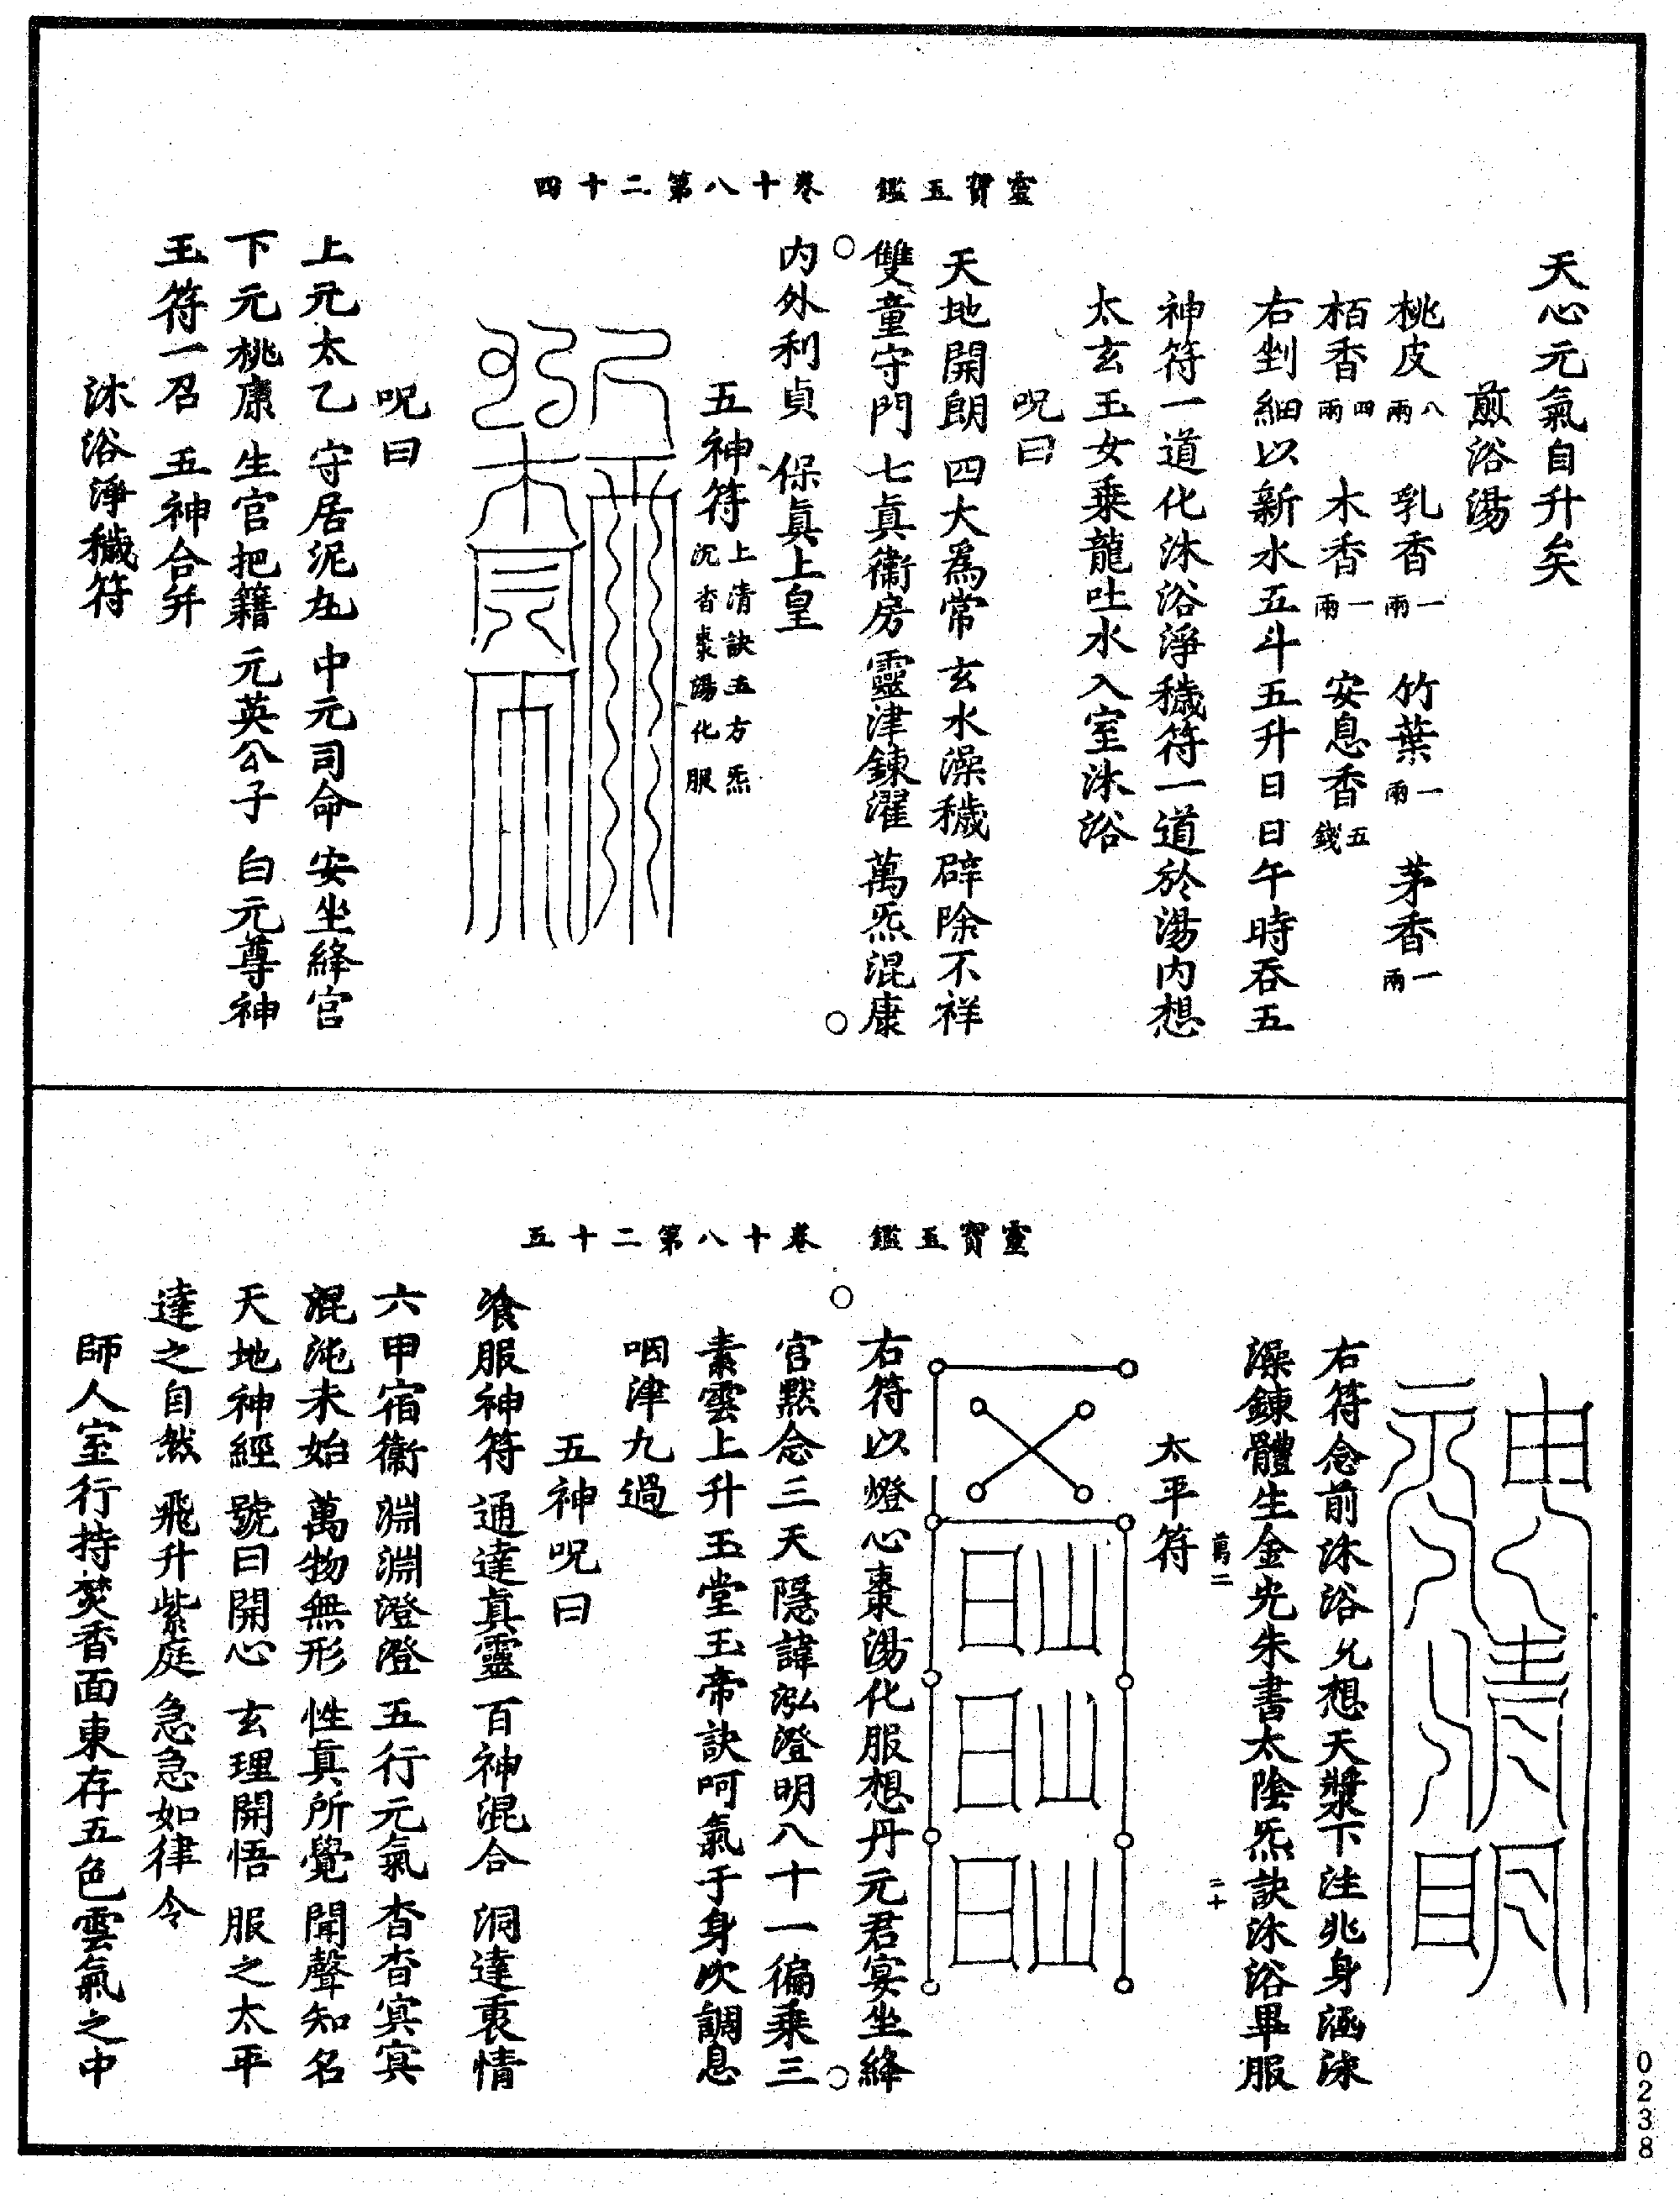 靈寶玉鑑　卷十八第二十四
天心元氣自升矣
煎浴湯
桃皮八兩　乳香一兩　竹葉一兩　茅香一兩
栢香四兩　木香一兩　安息香五錢
右剉細以新水五斗五升日日午時吞五
神符一道化沐浴淨穢符一道於湯内想
太玄玉女乘龍吐水入室沐浴
呪曰
天地開朗　四大爲常　玄水澡穢　辟除不祥
雙童守門　七眞衞房　靈津鍊濯　萬炁混康
内外利貞　保眞上皇
五神符上清訣五方炁沉香棗湯化服
呪曰
上元太乙　守居泥丸　中元司命　安坐絳宫
下元桃康　生官把籍　元英公子　白元尊神
玉符一召　五神合并
沐浴淨穢符
靈寶玉鑑　卷十八第二十五
右符念前沐浴呪想天漿下注兆身涵沐
澡鍊體生金光朱書太陰炁訣沐浴畢服
萬二　二十
太平符
右符以燈心棗湯化服想丹元君宴坐絳
宫黙念三天隱諱泓澄明八十一徧乘三
素雲上升玉堂玉帝訣呵氣于身吹調息
咽津九過
五神呪曰
飡服神符　通達眞靈　百神混合　洞達衷情
六甲宿衞　淵淵澄澄　五行元氣　杳杳㝠㝠
混沌未始　萬物無形　性眞所覺　聞聲知名
天地神經　號曰開心　玄理開悟　服之太平
達之自然　飛升紫庭　急急如律令
師人室行持焚香面東存五色雲氣之中
0238